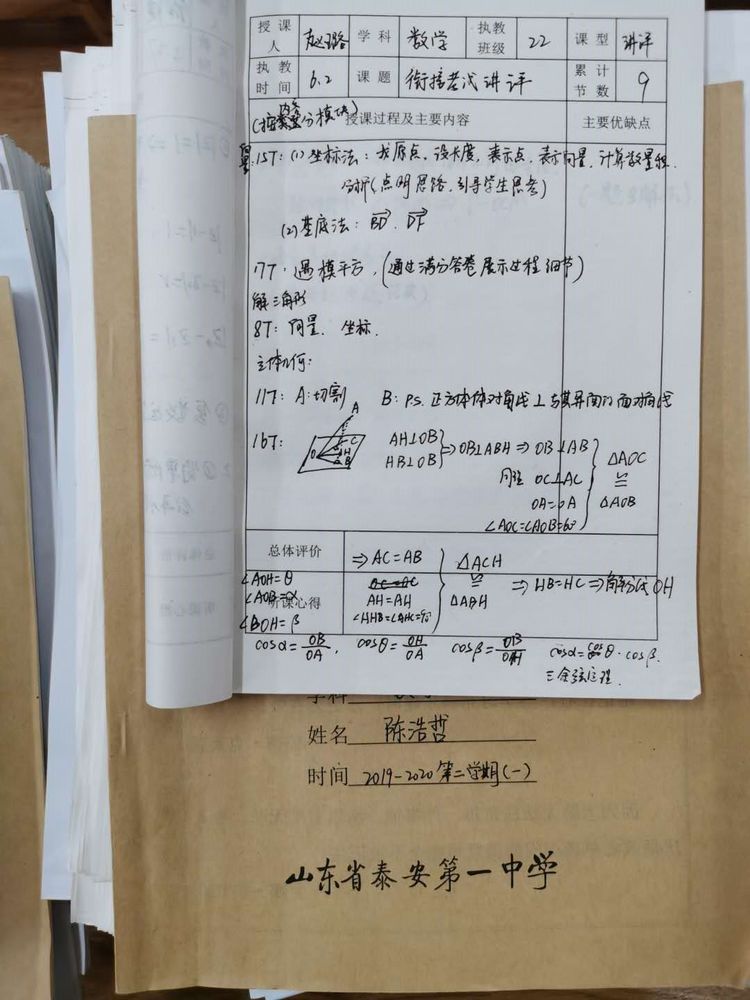 授课人 赵璐 学科 数学 执教班级 22 课型 讲评
执教时间 6.2 课题 衔接考试讲评 累计节数 9
(按内容分模块)
授课过程及主要内容 主要优缺点
向量:15T: (1) 坐标法: 找原点, 设长度, 表示点, 表示向量, 计算数量积.
分析(点明思路, 引导学生思考)
(2) 基底法: BD. DF
17T. 遇模平方, (通过满分答卷展示过程细节)
解三角形
8T: 向量. 坐标.
立体几何:
11T: A: 切割 B: PS. 正方体体对角线⊥与其异面的面对角线
16T: A O C H B
AH⊥OB
HB⊥OB ⇒ OB⊥ABH ⇒ OB⊥AB
同理 OC⊥AC
OA=OA
∠AOC=∠AOB=60°
△AOC ≌ △AOB
总体评价 ⇒ AC=AB
AH=AH
∠AHB=∠AHC=90°
△ACH ≌ △ABH ⇒ HB=HC ⇒ 角平分线OH
听课心得
∠AOH=θ
∠AOB=α
∠BOH=β
cosα=OB/OA, cosθ=OH/OA cosβ=OB/OH cosα=cosθ·cosβ.
三余弦定理.
学科
姓名 陈浩哲
时间 2019-2020第二学期(一)
山东省泰安第一中学